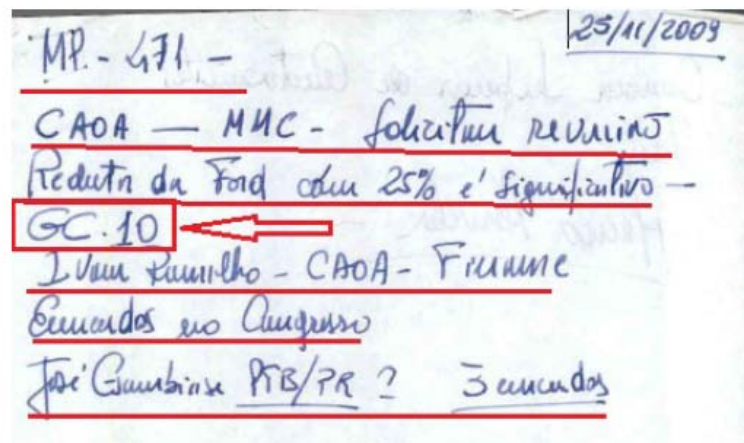 25/11/2009
MP. - 471 -
CAOA — MMC - Solicitam reunião
Redutor da Ford com 25% é significativo -
GC.10
Ivan Ramalho - CAOA -
Emendas no Congresso
José PTB/PR ? 3 emendas